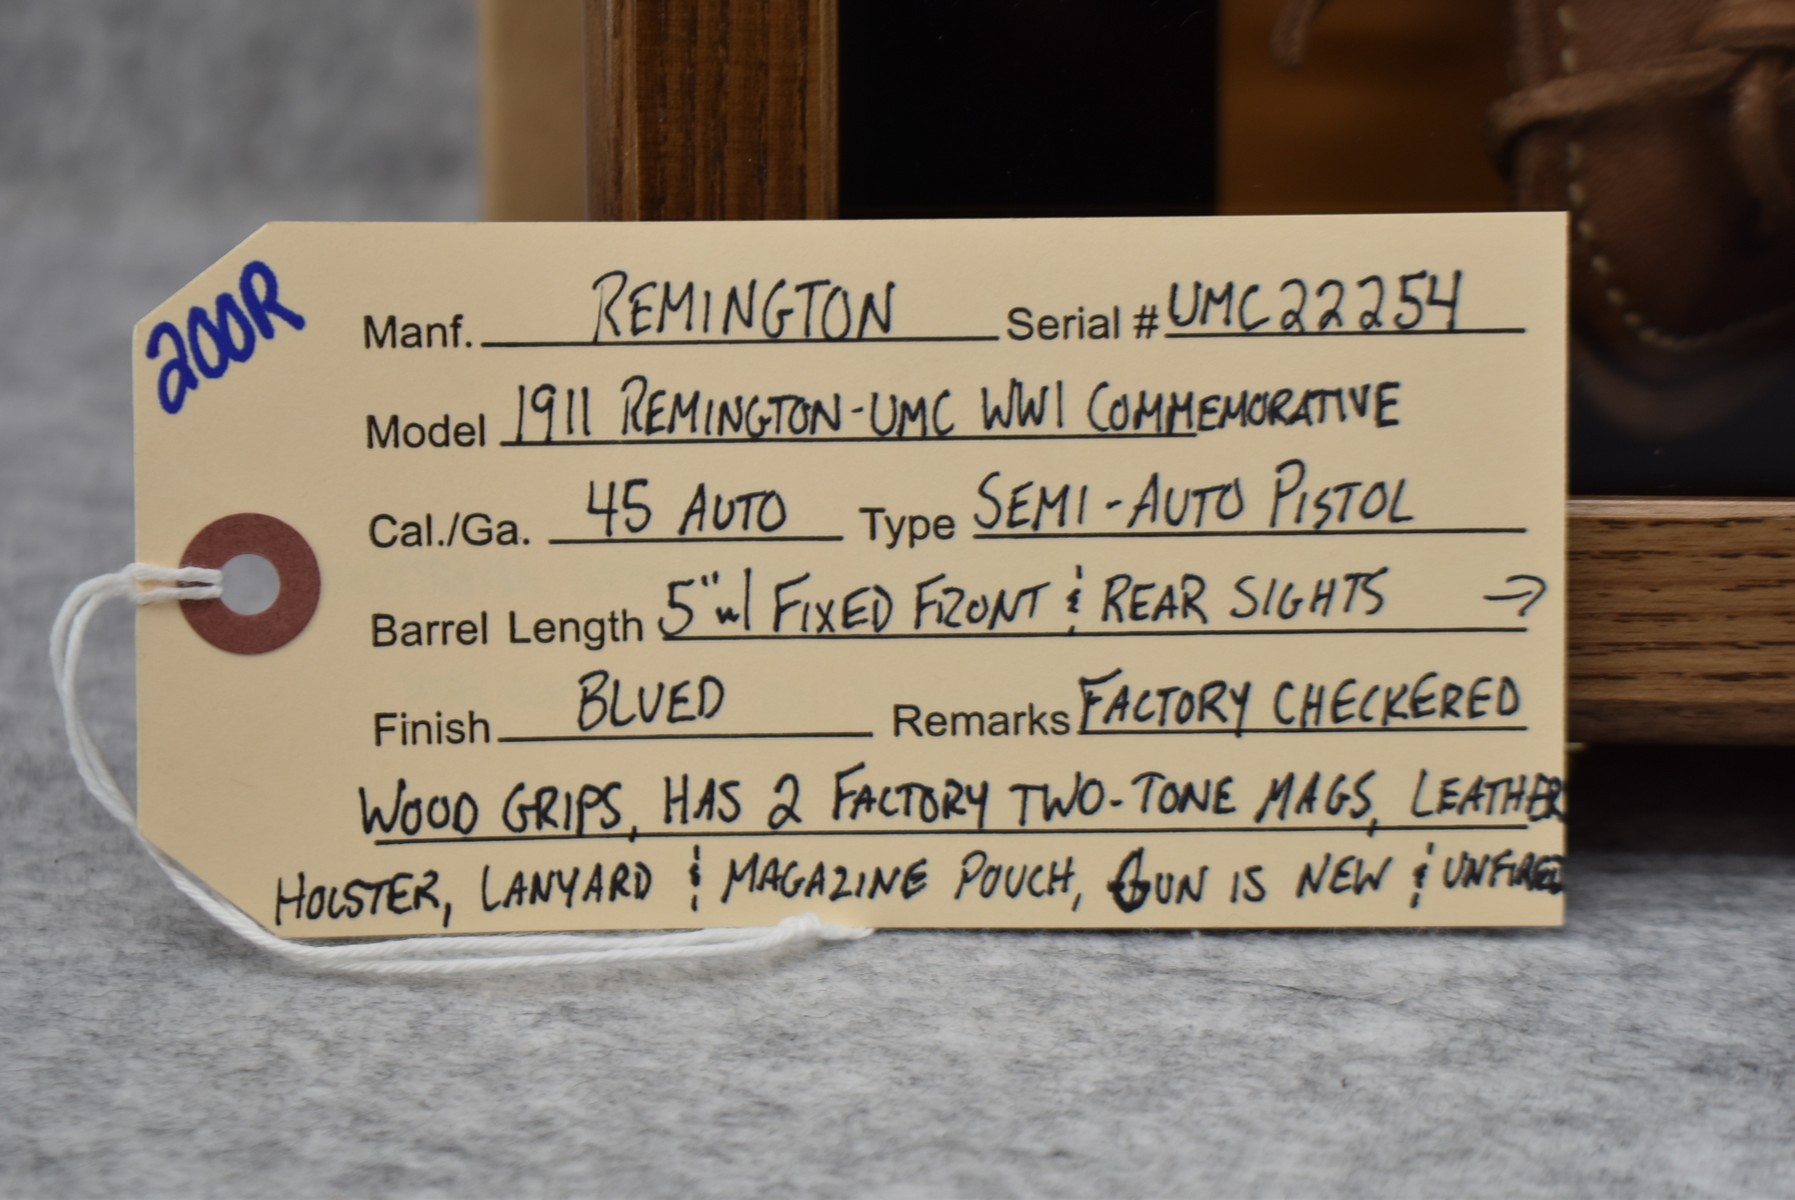 200R
Manf. REMINGTON Serial # UMC22254
Model 1911 REMINGTON-UMC WW1 COMMEMORATIVE
Cal./Ga. 45 AUTO Type SEMI-AUTO PISTOL
Barrel Length 5" w/ FIXED FRONT & REAR SIGHTS →
Finish BLUED Remarks FACTORY CHECKERED
WOOD GRIPS, HAS 2 FACTORY TWO-TONE MAGS, LEATHER
HOLSTER, LANYARD & MAGAZINE POUCH, GUN IS NEW & UNFIRED